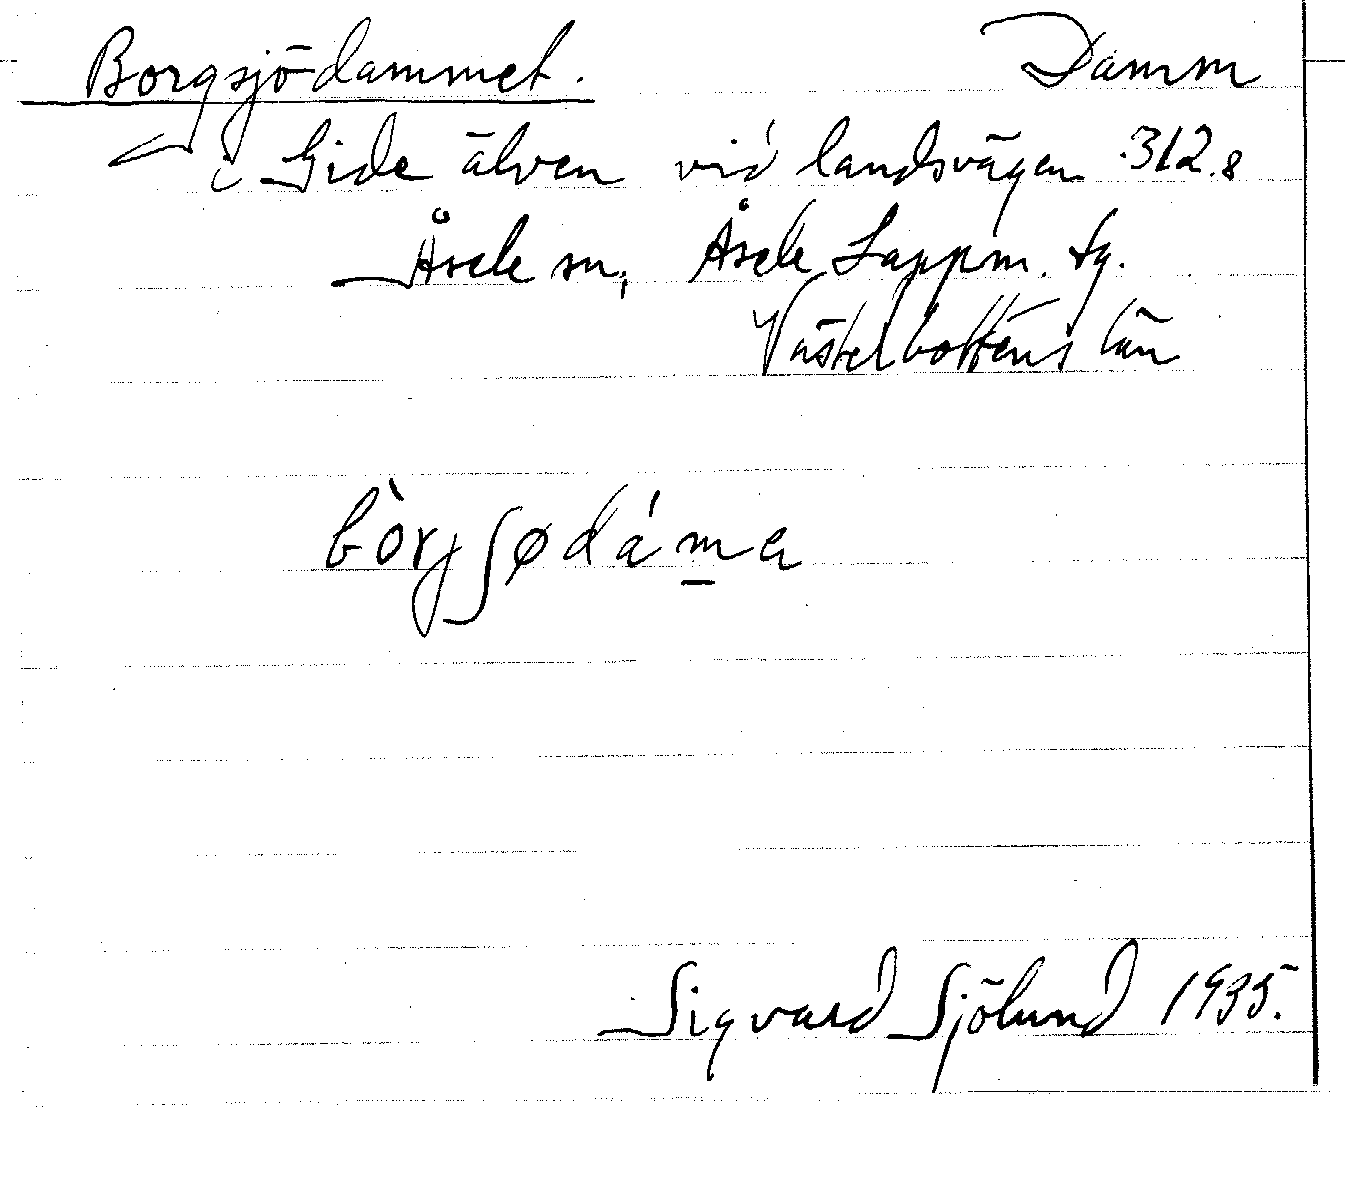 Borgsjödammet. Damm
i Gide älven vid landsvägen 312.8
Åsele sn, Åsele Lappm. tg.
Västerbottens län
bòrjʃødám̲a
Sigvard Sjölund 1935.